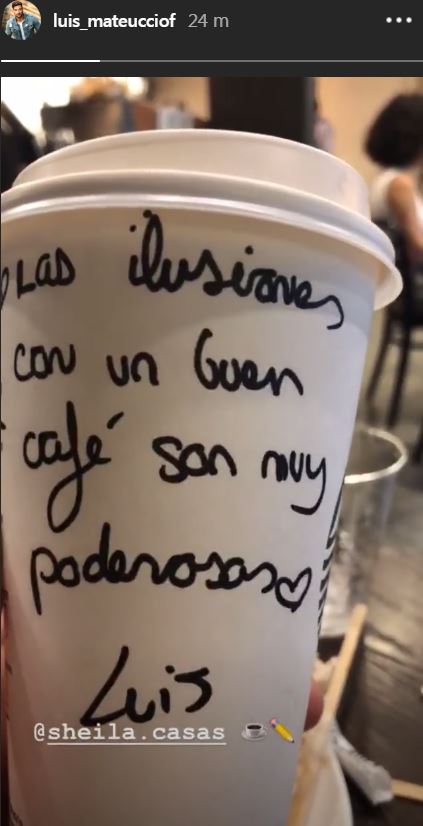 luis_mateucciof 24 m
Las ilusiones
con un buen
café son muy
poderosas
Luis
@sheila.casas